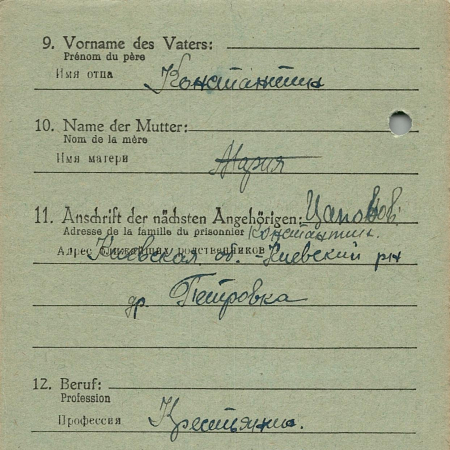 9. Vorname des Vaters:
Prénom du père
Имя отца Константин
10. Name der Mutter:
Nom de la mère
Имя матери Мария
11. Anschrift der nächsten Angehörigen:
Adresse de la famille du prisonnier Константин.
Адрес ближайших родственников
Киевская об. - Киевский рн
др. Петровка
12. Beruf:
Profession
Профессия Крестьянин.